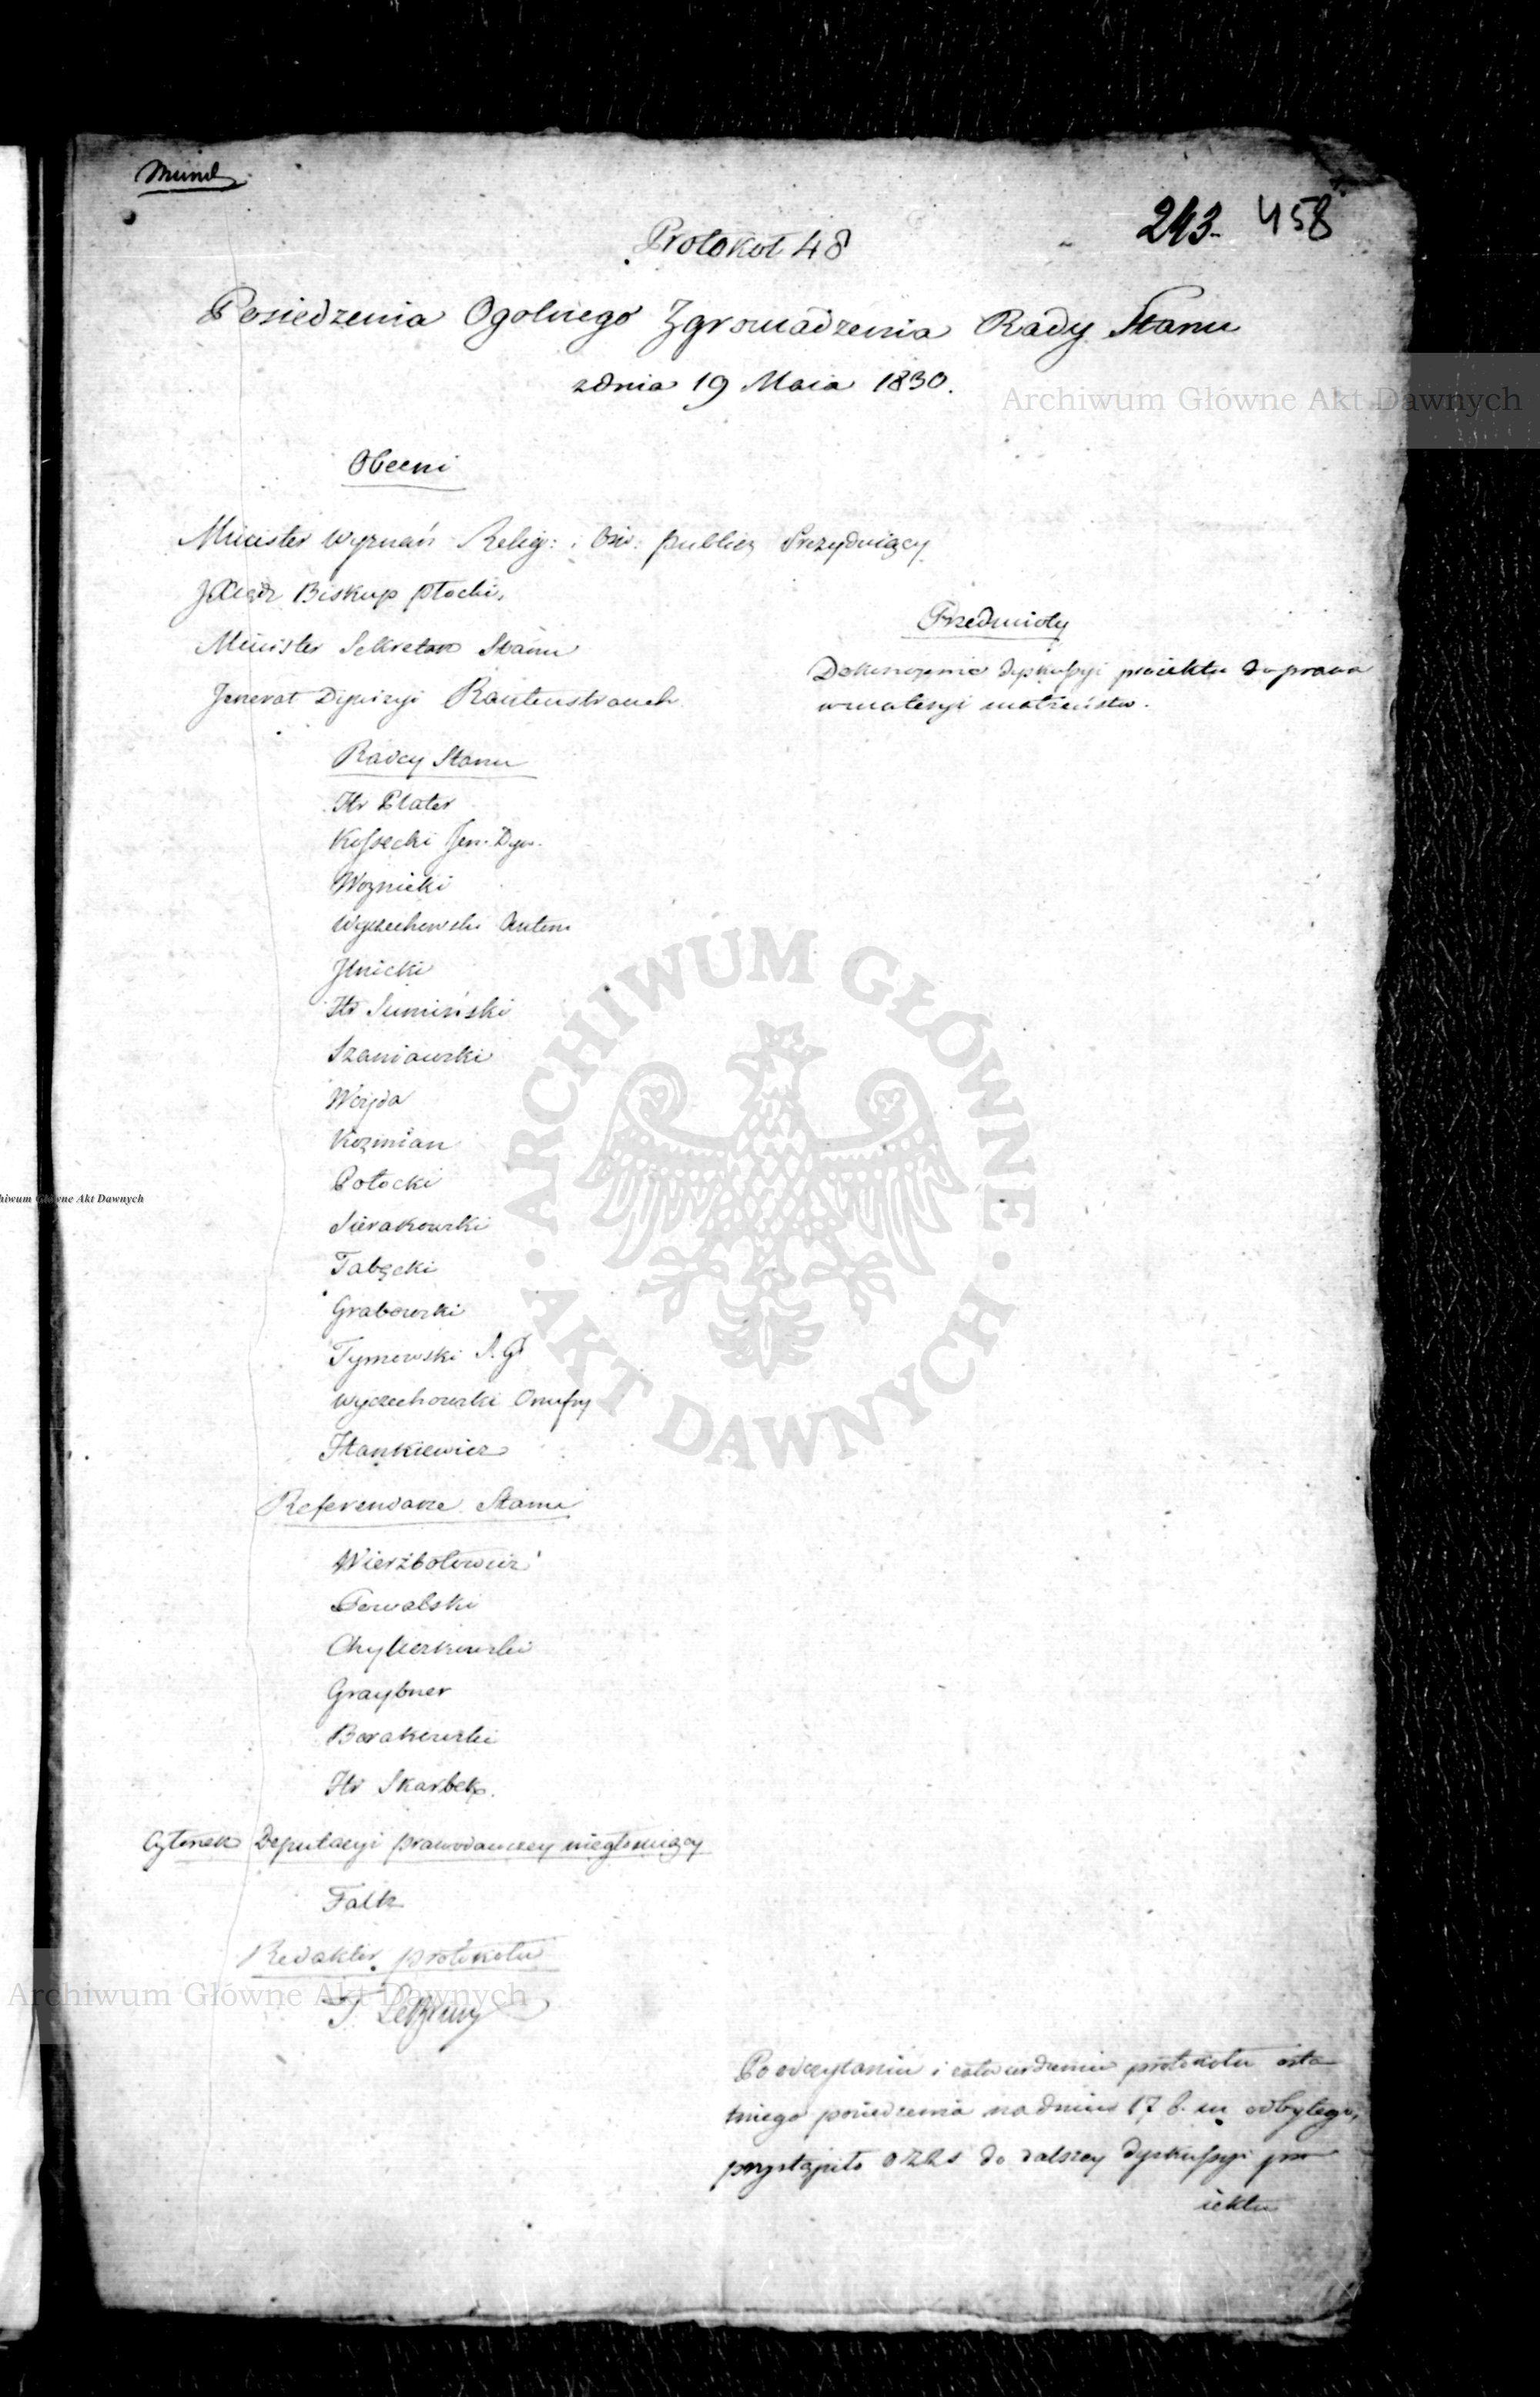 Mund
243. 458
Protokół 48
Posiedzenia Ogolnego Zgromadzenia Rady Stanu
z dnia 19 Maia 1830.
Archiwum Główne Akt Dawnych
Obecni
Minister Wyznań Relig: i Ośw: publicz Prezyduiący
JXiądz Biskup płocki,
Minister Sekretarz Stanu
Jenerał Dywizyi Rautenstrauch
Przedmioty
Dokończenie dyskussyi proiektu do prawa
w materyi małżeństw.
Radcy Stanu
Hr Plater
Kossecki Jen. Dyw.
Woznicki
Wyczechowski Antoni
Hr Sumiński
Szaniawski
Woyda
Kozmian
Potocki
Sierakowski
Tabęcki
Grabowski
Tymowski
Wyczechowski Onufry
Stankiewicz
Referendarze Stanu
Wierzbołowicz
Chyliczkowski
Graybner
Borakowski
Hr Skarbek.
Członek Deputacyi prawodawczey niegłosuiący
Falk
Redaktor protokołu
Archiwum Główne Akt Dawnych
Po odczytaniu i zatwierdzeniu protokołu osta
tniego posiedzenia na dniu 17 b. m odbytego,
przystąpiło OZRS do dalszey dyskussyi pro
iektu
ARCHIWUM GŁÓWNE
AKT DAWNYCH
hiwum Główne Akt Dawnych